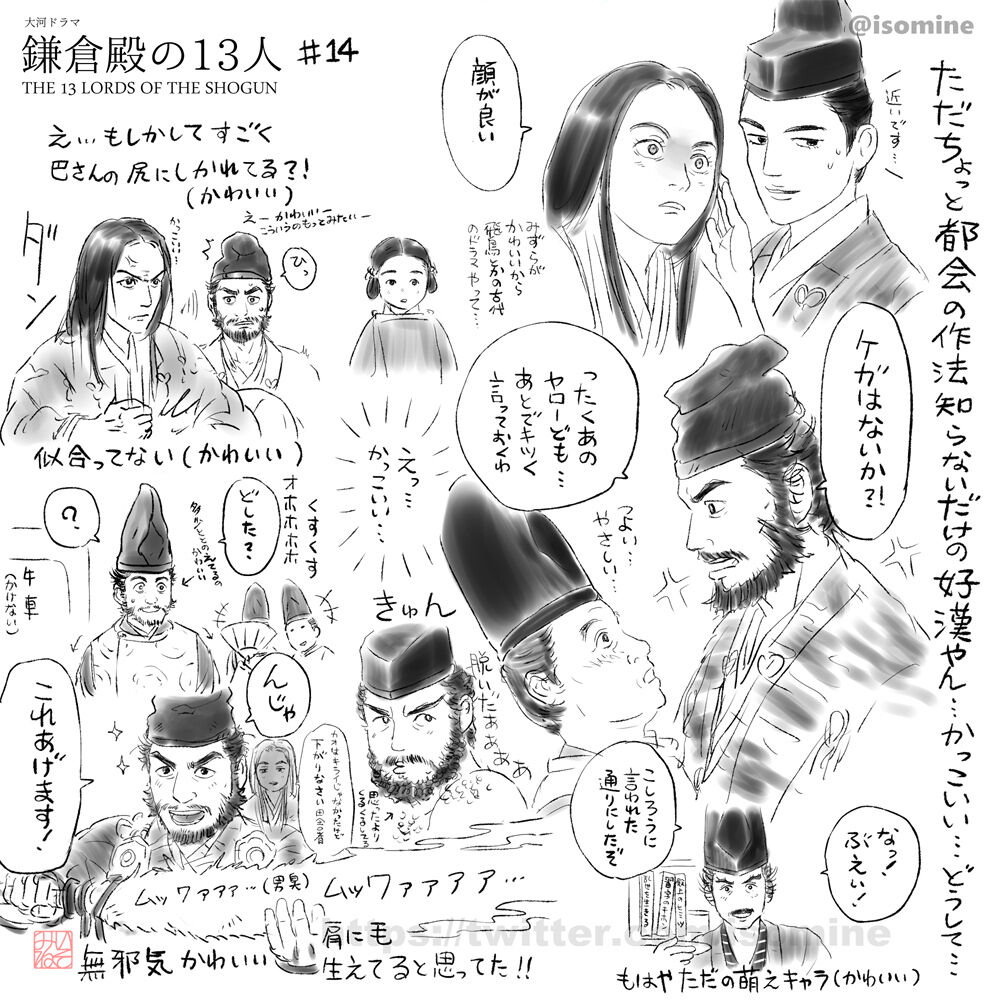 大河ドラマ
鎌倉殿の13人 #14
THE 13 LORDS OF THE SHOGUN
@isomine
ただちょっと都会の作法知らないだけの好漢やん…かっこいい…どうして…
近いです…
顔が良い
え…もしかしてすごく
巴さんの尻にしかれてる?!
(かわいい)
えーかわいいー
こういうのもっとみたいー
ダン
かっこいい…
ひっ
みずらが
かわいいから
飛鳥とかの古代
のドラマやって…
似合ってない(かわいい)
ケガはないか?!
ったくあの
ヤローども…
あとでキツく
言っておくわ
えっ…
かっこいい…
つよい…
やさしい…
くすくす
オホホホホホ
どした?
?
牛車
(かけない)
きゅん
脱いだぁぁぁぁ
んじゃ
これあげます!
思ったより
こしろうに
言われた
通りにしたぞ
なっ!
ぶえい!
ムッワァァァ…(男臭)
ムッワァァァァ…
無邪気かわいい
肩にも
生えてると思ってた!!
もはやただの萌えキャラ(かわいい)